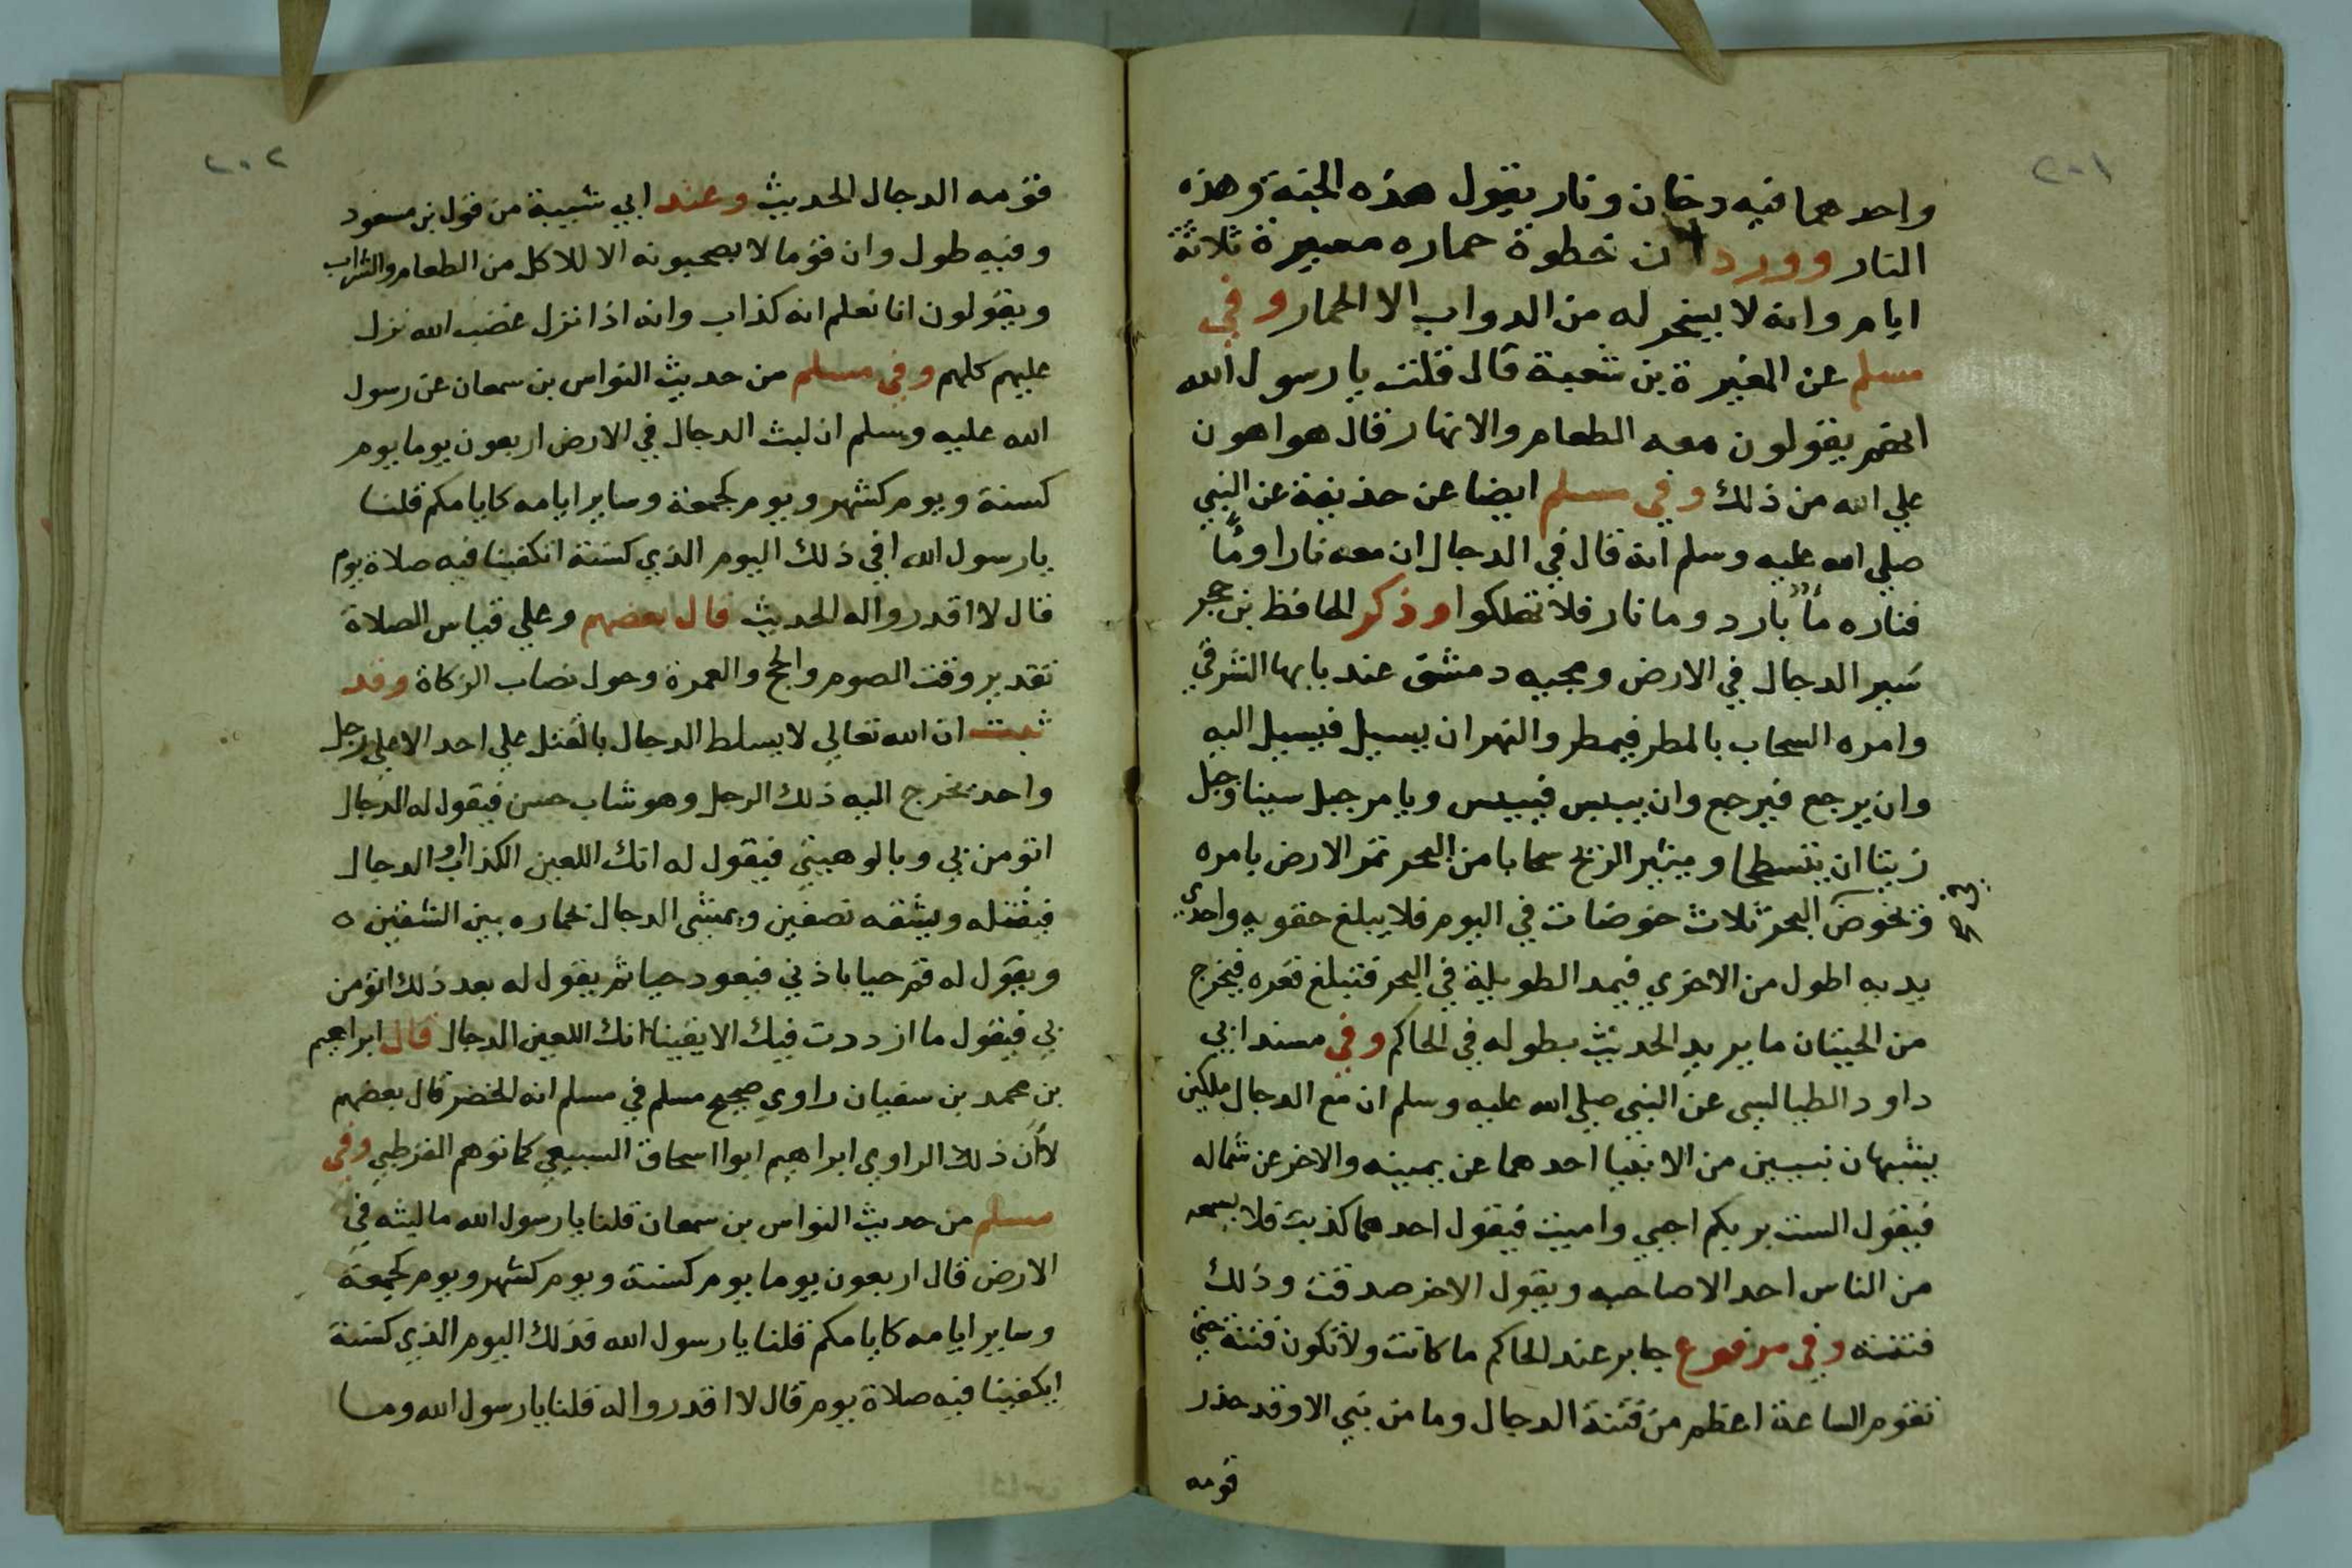 ٢٠١
واحدهما فيه دخان ونار يقول هذه الجنة وهذه
النار وورد ان خطوة حماره مسيرة ثلاثة
ايام وانه لا يسخر له من الدواب الا الحمار وفي
مسلم عن المغيرة بن شعبة قال قلت يا رسول الله
انهم يقولون معه الطعام والانهار قال هو اهون
علي الله من ذلك وفي مسلم ايضا عن حذيفة عن النبي
صلي الله عليه وسلم انه قال في الدجال ان معه نارا وماً
فناره ماً بارد وما نار فلا تهلكوا وذكر الحافظ بن حجر
سير الدجال في الارض ومجيه دمشق عند بابها الشرقي
وامره السحاب بالمطر فيمطر والنهر ان يسيل فيسيل اليه
وان يرجع فيرجع وان ييبس فييبس ويامر جبل سينا وجبل
زيتا ان ينتطحا ويثير الريح سحابا من البحر تمر الارض بامره
وتخوض البحر ثلاث خوضات في اليوم فلا يبلغ حقويه واحدي
يديه اطول من الاخري فيمد الطويلة في البحر فتبلغ قعره فيخرج
من الحيتان ما يريد الحديث بطوله في الحاكم وفي مسند ابي
داود الطيالسي عن النبي صلي الله عليه وسلم ان مع الدجال ملكين
يشبهان نبيين من الانبيا احدهما عن يمينه والاخر عن شماله
فيقول الست بربكم احيي واميت فيقول احدهما كذبت فلا يسمعه
من الناس احد الا صاحبه ويقول الاخر صدقت وذلك
فتنته وفي مرفوع جابر عند الحاكم ما كانت ولا تكون فتنة حتي
تقوم الساعة اعظم من فتنة الدجال وما من نبي الا وقد حذر
قومه
٢٠٢
قومه الدجال الحديث وعند ابي شيبة من قول بن مسعود
وفيه طول وان قوما لا يصحبونه الا للاكل من الطعام والشراب
ويقولون انا نعلم انه كذاب وانه اذا نزل غضب الله نزل
عليهم كلهم وفي مسلم من حديث النواس بن سمعان عن رسول
الله عليه وسلم ان لبث الدجال في الارض اربعون يوما يوم
كسنة ويوم كشهر ويوم كجمعة وساير ايامه كايامكم قلنا
يا رسول الله افي ذلك اليوم الذي كسنة اتكفينا فيه صلاة يوم
قال لا اقدروا له الحديث قال بعضهم وعلي قياس الصلاة
تقدير وقت الصوم والحج والعمرة وحول نصاب الزكاة وقد
ثبت ان الله تعالي لا يسلط الدجال بالقتل علي احد الا علي رجل
واحد يخرج اليه ذلك الرجل وهو شاب حسن فيقول له الدجال
اتومن بي وبالوهيتي فيقول له انك اللعين الكذاب او الدجال
فيقتله ويشقه نصفين ويمشي الدجال بحماره بين الشقين ه
ويقول له قم حيا باذني فيعود حيا ثم يقول له بعد ذلك اتومن
بي فيقول ما ازددت فيك الا يقينا انك اللعين الدجال قال ابراهيم
بن محمد بن سفيان راوي صحيح مسلم في مسلم انه الخضر قال بعضهم
لا ان ذلك الراوي ابراهيم ابوا اسحاق السبيعي كما توهم القرطبي وفي
مسلم من حديث النواس بن سمعان قلنا يا رسول الله ما لبثه في
الارض قال اربعون يوما يوم كسنة ويوم كشهر ويوم كجمعة
وساير ايامه كايامكم قلنا يا رسول الله فذلك اليوم الذي كسنة
ايكفينا فيه صلاة يوم قال لا اقدروا له قلنا يا رسول الله وما